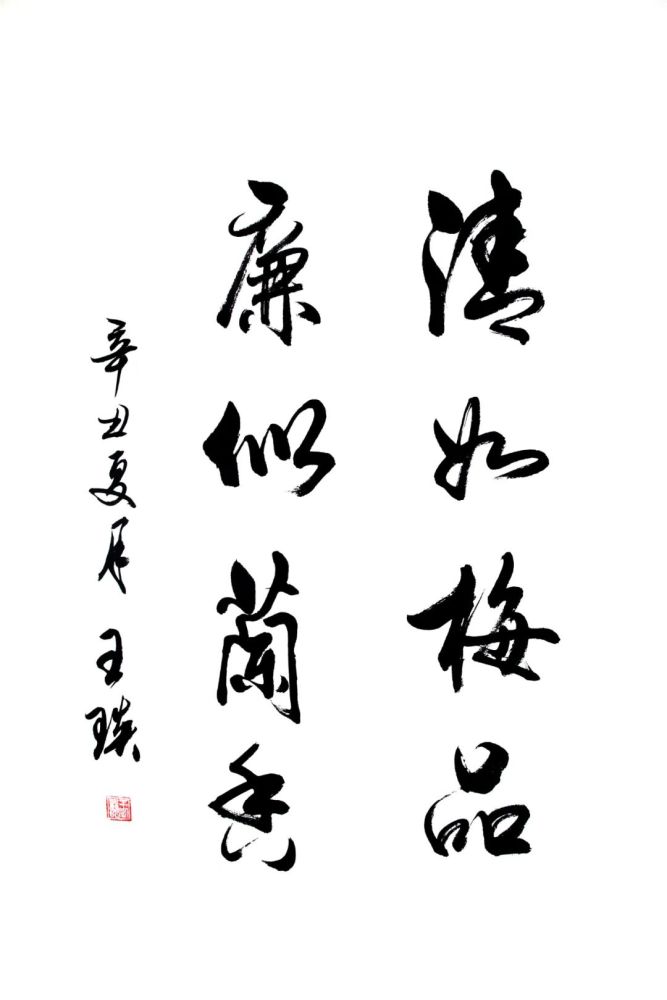 清如梅品
廉似蘭香
辛丑夏月 王瑛